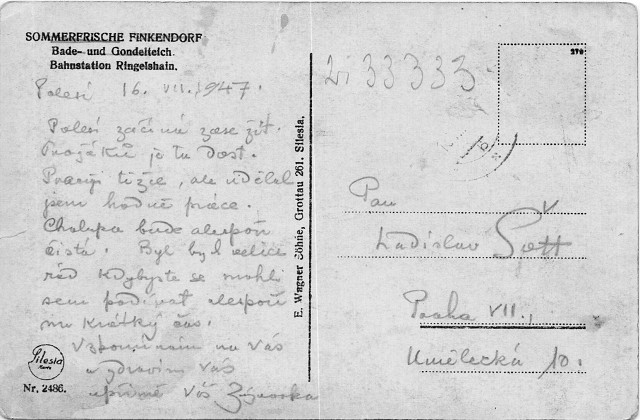 SOMMERFRISCHE FINKENDORF
Bade- und Gondelteich.
Bahnstation Ringelshain.
Polesí 16. VII. 1947.
Polesí začíná zase žít.
Vojáků je tu dost.
Pracuji tíže, ale udělal
jsem hodně práce.
Chalupa bude alespoň
čistá. Byl bych velice
rád kdybyste se mohli
sem podívat alespoň
na krátký čas.
Vzpomínám na Vás
a zdravím Vás
upřímně Váš
Silesia
Karte
Nr. 2486.
E. Wagner Söhne, Grottau 261. Silesia.
33333
270
Pan
Ladislav
Praha VII.,
Umělecká 10.